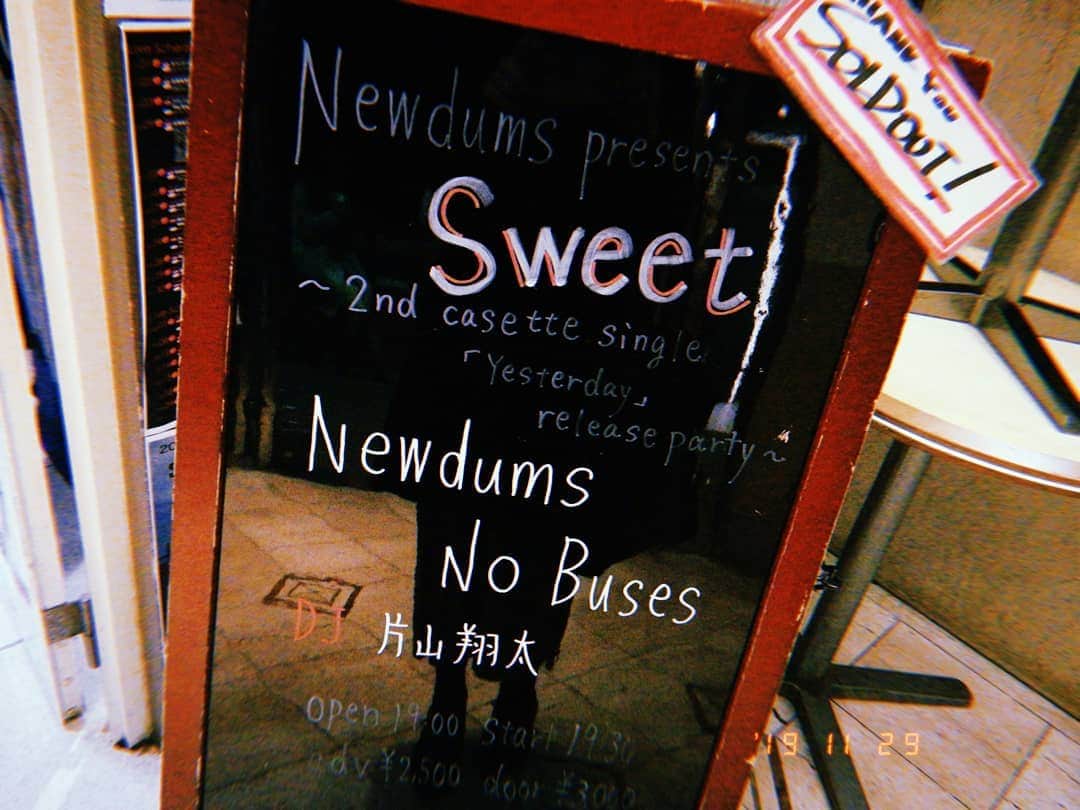 THANK YOU
SOLDOUT!
Newdums presents
Sweet
~2nd casette single
「Yesterday」
release party~
Newdums
No Buses
DJ 片山翔太
open 19:00 start 19:30
adv ¥2,500 door ¥3,000
'19 11 29